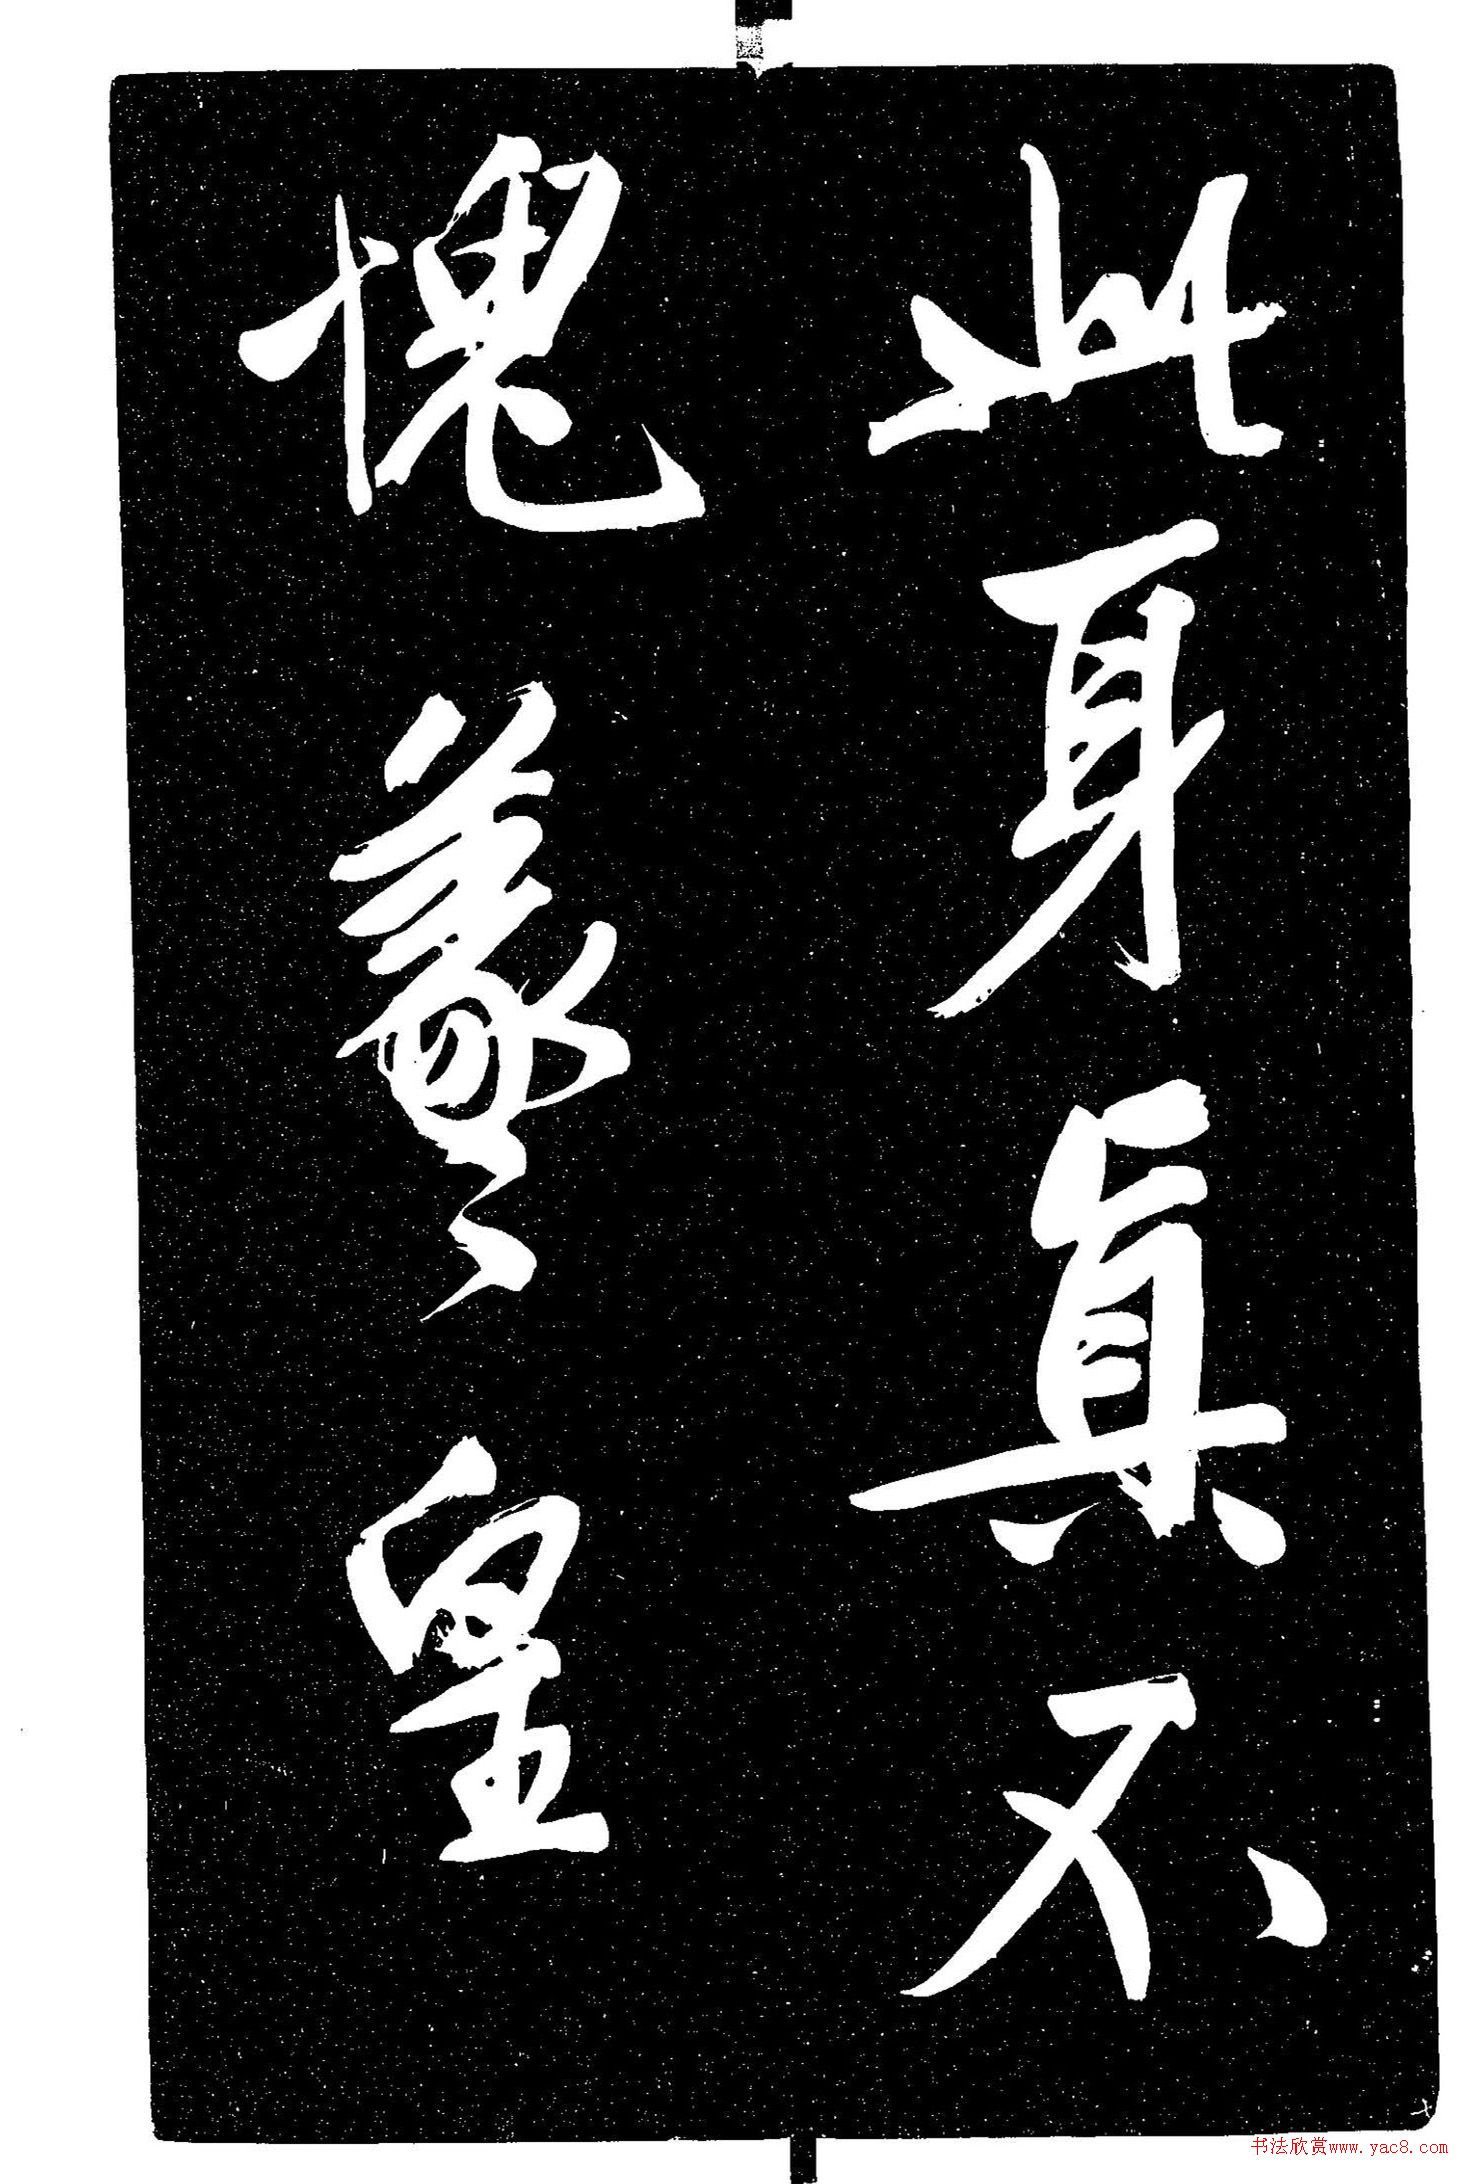 此身真不
愧羲皇
书法欣赏www.yac8.com